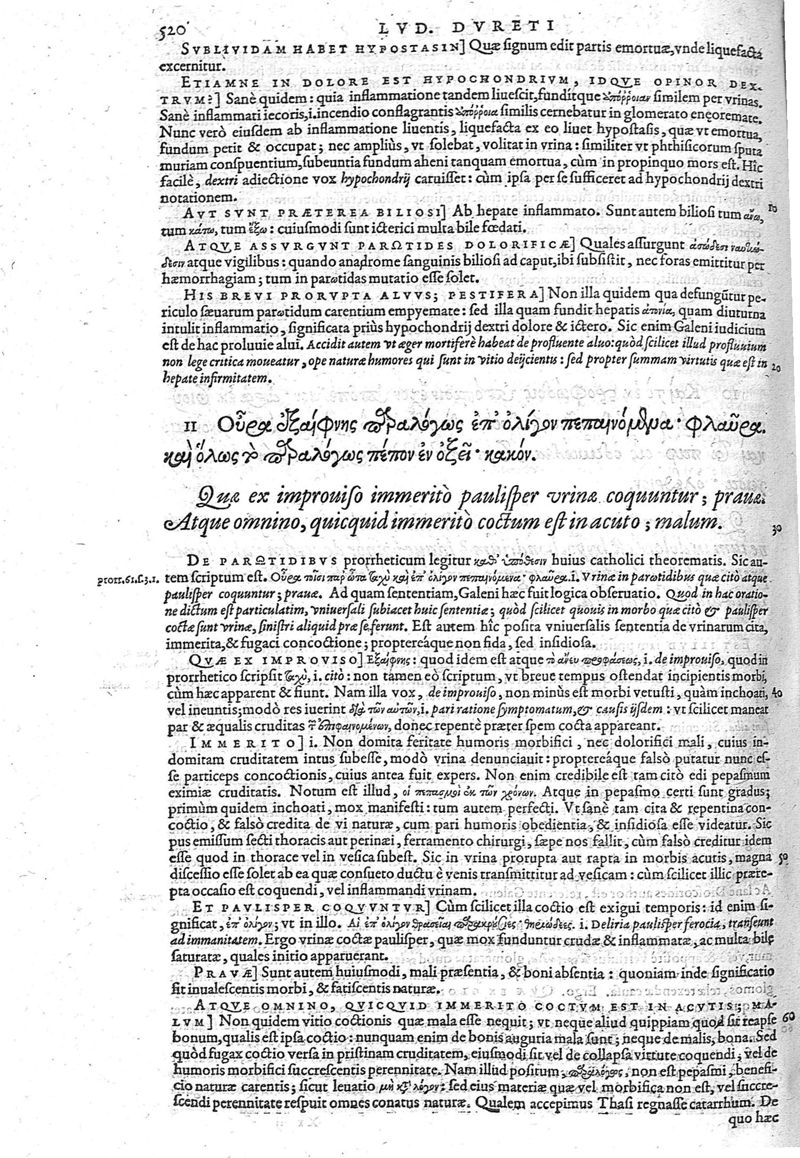 520 LVD. DVRETI
SVBLIVIDAM HABET HYPOSTASIN] Quæ signum edit partis emortuæ, vnde liquefacta
excernitur.
ETIAMNE IN DOLORE EST HYPOCHONDRIVM, IDQVE OPINOR DEX-
TRVM?] Sanè quidem: quia inflammatione tandem liuescit, funditque ὑπόῤῥοιαν similem per vrinas.
Sanè inflammati iecoris, i. incendio conflagrantis ὑπόῤῥοια similis cernebatur in glomerato eneoremate.
Nunc verò eiusdem ab inflammatione liuentis, liquefacta ex eo liuet hypostasis, quæ vt emortua,
fundum petit & occupat; nec ampliùs, vt solebat, volitat in vrina: similiter vt phthisicorum sputa
muriam conspuentium, subeuntia fundum aheni tanquam emortua, cùm in propinquo mors est. Hîc
facilè, dextri adiectione vox hypochondrij caruisset: cùm ipsa per se sufficeret ad hypochondrij dextri
notationem.
AVT SVNT PRÆTEREA BILIOSI] Ab hepate inflammato. Sunt autem biliosi tum ἄνω, 10
tum κάτω, tum ἔξω: cuiusmodi sunt icterici multa bile fœdati.
ATQVE ASSVRGVNT PARΩTIDES DOLORIFICÆ] Quales assurgunt
atque vigilibus: quando anadrome sanguinis biliosi ad caput, ibi subsistit, nec foras emittitur per
hæmorrhagiam; tum in parωtidas mutatio esse solet.
HIS BREVI PRORVPTA ALVVS; PESTIFERA] Non illa quidem qua defungũtur pe-
riculo sæuarum parωtidum carentium empyemate: sed illa quam fundit hepatis ἀπονία, quam diuturna
intulit inflammatio, significata priùs hypochondrij dextri dolore & ictero. Sic enim Galeni iudicium
est de hac proluuie alui. Accidit autem vt æger mortiferè habeat de profluente aluo: quòd scilicet illud profluuium
non lege critica moueatur, ope naturæ humores qui sunt in vitio deijcientis: sed propter summam virtutis quæ est in 20
hepate infirmitatem.
11 Οὖρα ἐξαίφνης παραλόγως ἐπ' ὀλίγον πεπαινόμενα· φλαῦρα.
καὶ ὅλως τὸ παραλόγως πέπον ἐν ὀξεῖ· κακόν.
Quæ ex improuiso immeritò paulisper vrinæ coquuntur; prauæ.
Atque omnino, quicquid immeritò coctum est in acuto; malum. 30
DE PARΩTIDIBVS prorrheticum legitur καθ' ὑπόθεσιν huius catholici theorematis. Sic au-
prorr. 61. l. 3. 1. tem scriptum est. Οὖρα τοῖσι παρ' ὦτα ταχὺ καὶ ἐπ' ὀλίγον πεπαινόμενα· φλαῦρα. i. Vrinæ in parωtidibus quæ citò atque
paulisper coquuntur; prauæ. Ad quam sententiam, Galeni hæc fuit logica obseruatio. Quod in hac oratio-
ne dictum est particulatim, vniuersali subiacet huic sententiæ; quòd scilicet quouis in morbo quæ citò & paulisper
coctæ sunt vrinæ, sinistri aliquid præ se ferunt. Est autem hîc posita vniuersalis sententia de vrinarum cita,
immerita, & fugaci concoctione; proptereáque non fida, sed insidiosa.
QVÆ EX IMPROVISO] Ἐξαίφνης: quod idem est atque τὸ ἄνευ προφάσεως, i. de improuiso, quod in
prorrhetico scripsit ταχὺ, i. citò: non tamen eò scriptum, vt breue tempus ostendat incipientis morbi,
cùm hæc apparent & fiunt. Nam illa vox, de improuiso, non minùs est morbi vetusti, quàm inchoati, 40
vel ineuntis; modò res iuerint διὰ τῶν αὐτῶν, i. pari ratione symptomatum, & causis ijsdem: vt scilicet maneat
par & æqualis cruditas τῶν ἐπιφαινομένων, donec repentè præter spem cocta appareant.
IMMERITO] i. Non domita feritate humoris morbifici, nec dolorifici mali, cuius in-
domitam cruditatem intus subesse, modò vrina denunciauit: proptereáque falsò putatur nunc es-
se particeps concoctionis, cuius antea fuit expers. Non enim credibile est tam citò edi pepasmum
eximiæ cruditatis. Notum est illud, οἱ πεπασμοὶ ἐκ τῶν χρόνων. Atque in pepasmo certi sunt gradus;
primùm quidem inchoati, mox manifesti: tum autem perfecti. Vt sanè tam cita & repentina con-
coctio, & falsò credita de vi naturæ, cum pari humoris obedientia, & insidiosa esse videatur. Sic
pus emissum secti thoracis aut perinæi, ferramento chirurgi, sæpe nos fallit, cùm falsò creditur idem
esse quod in thorace vel in vesica subest. Sic in vrina prorupta aut rapta in morbis acutis, magna 50
discessio esse solet ab ea quæ consueto ductu è venis transmittitur ad vesicam: cùm scilicet illic prære-
pta occasio est coquendi, vel inflammandi vrinam.
ET PAVLISPER COQVVNTVR] Cùm scilicet illa coctio est exigui temporis: id enim si-
gnificat, ἐπ' ὀλίγον; vt in illo. Αἱ ἐπ' ὀλίγον θρασεῖαι παρακρούσιες· θηριώδεες. i. Deliria paulisper ferocia, transeunt
ad immanitatem. Ergo vrinæ coctæ paulisper, quæ mox funduntur crudæ & inflammatæ, ac multa bile
saturatæ, quales initio apparuerant.
PRAVÆ] Sunt autem huiusmodi, mali præsentia, & boni absentia: quoniam inde significatio
fit inualescentis morbi, & fatiscentis naturæ.
ATQVE OMNINO, QVICQVID IMMERITO COCTVM EST IN ACVTIS; MA-
LVM] Non quidem vitio coctionis quæ mala esse nequit; vt neque aliud quippiam quod sit reapse 60
bonum, qualis est ipsa coctio: nunquam enim de bonis auguria mala sunt; neque de malis, bona. Sed
quòd fugax coctio versa in pristinam cruditatem, eiusmodi sit vel de collapsa virtute coquendi, vel de
humoris morbifici succrescentis perennitate. Nam illud positum, παραλόγως, non est pepasmi, benefi-
cio naturæ carentis; sicut leuatio μὴ κατὰ λόγον: sed eius materiæ quæ vel morbifica non est, vel succre-
scendi perennitate respuit omnes conatus naturæ. Qualem accepimus Thasi regnasse catarrhum. De
quo hæc